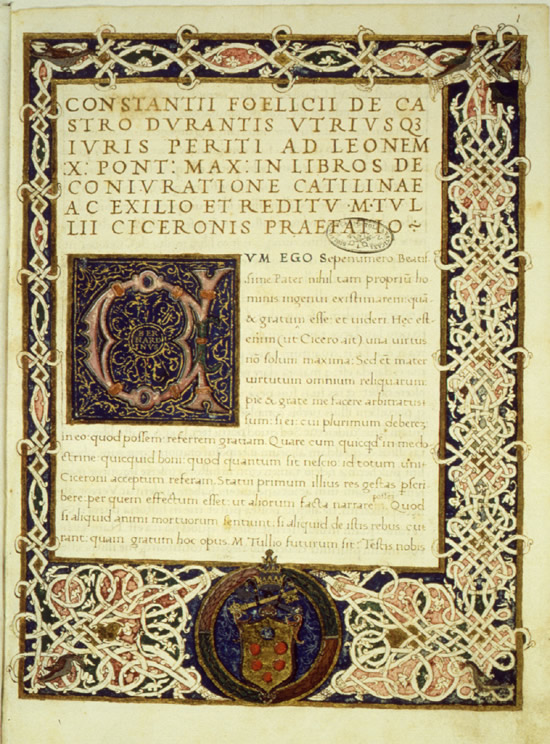 CONSTANTII FOELICII DE CA
STRO DVRANTIS VTRIVSQ3
IVRIS PERITI AD LEONEM
.X. PONT: MAX: IN LIBROS DE
CONIVRATIONE CATILINAE
AC EXILIO ET REDITV ·M·TVL
LII CICERONIS PRAEFATIO
VM EGO Sepenumero Beatis
sime Pater nihil tam propriũ ho
minis ingenii existimarem: quã
& gratum esse: et uideri. Hec est
enim (ut Cicero ait) una uirtus
nõ solum maxima: Sed et mater
uirtutum omnium reliquarum:
pie & grate me facere arbitratus
sum: si ei: cui plurimum deberez
in eo: quod possem: referrem gratiam. Quare cum quicqd in me do
ctrine: quicquid boni: quod quantum sit nescio: id totum uni
Ciceroni acceptum referam. Statui primum illius res gestas pscri
bere: per quem effectum esset: ut aliorum facta narrarem. Quod
si aliquid animi mortuorum sentiunt: si aliquid de istis rebus cu
rant: quam gratum hoc opus M. Tullio futurum sit: Testis nobis
BER
NARD
INVS
1